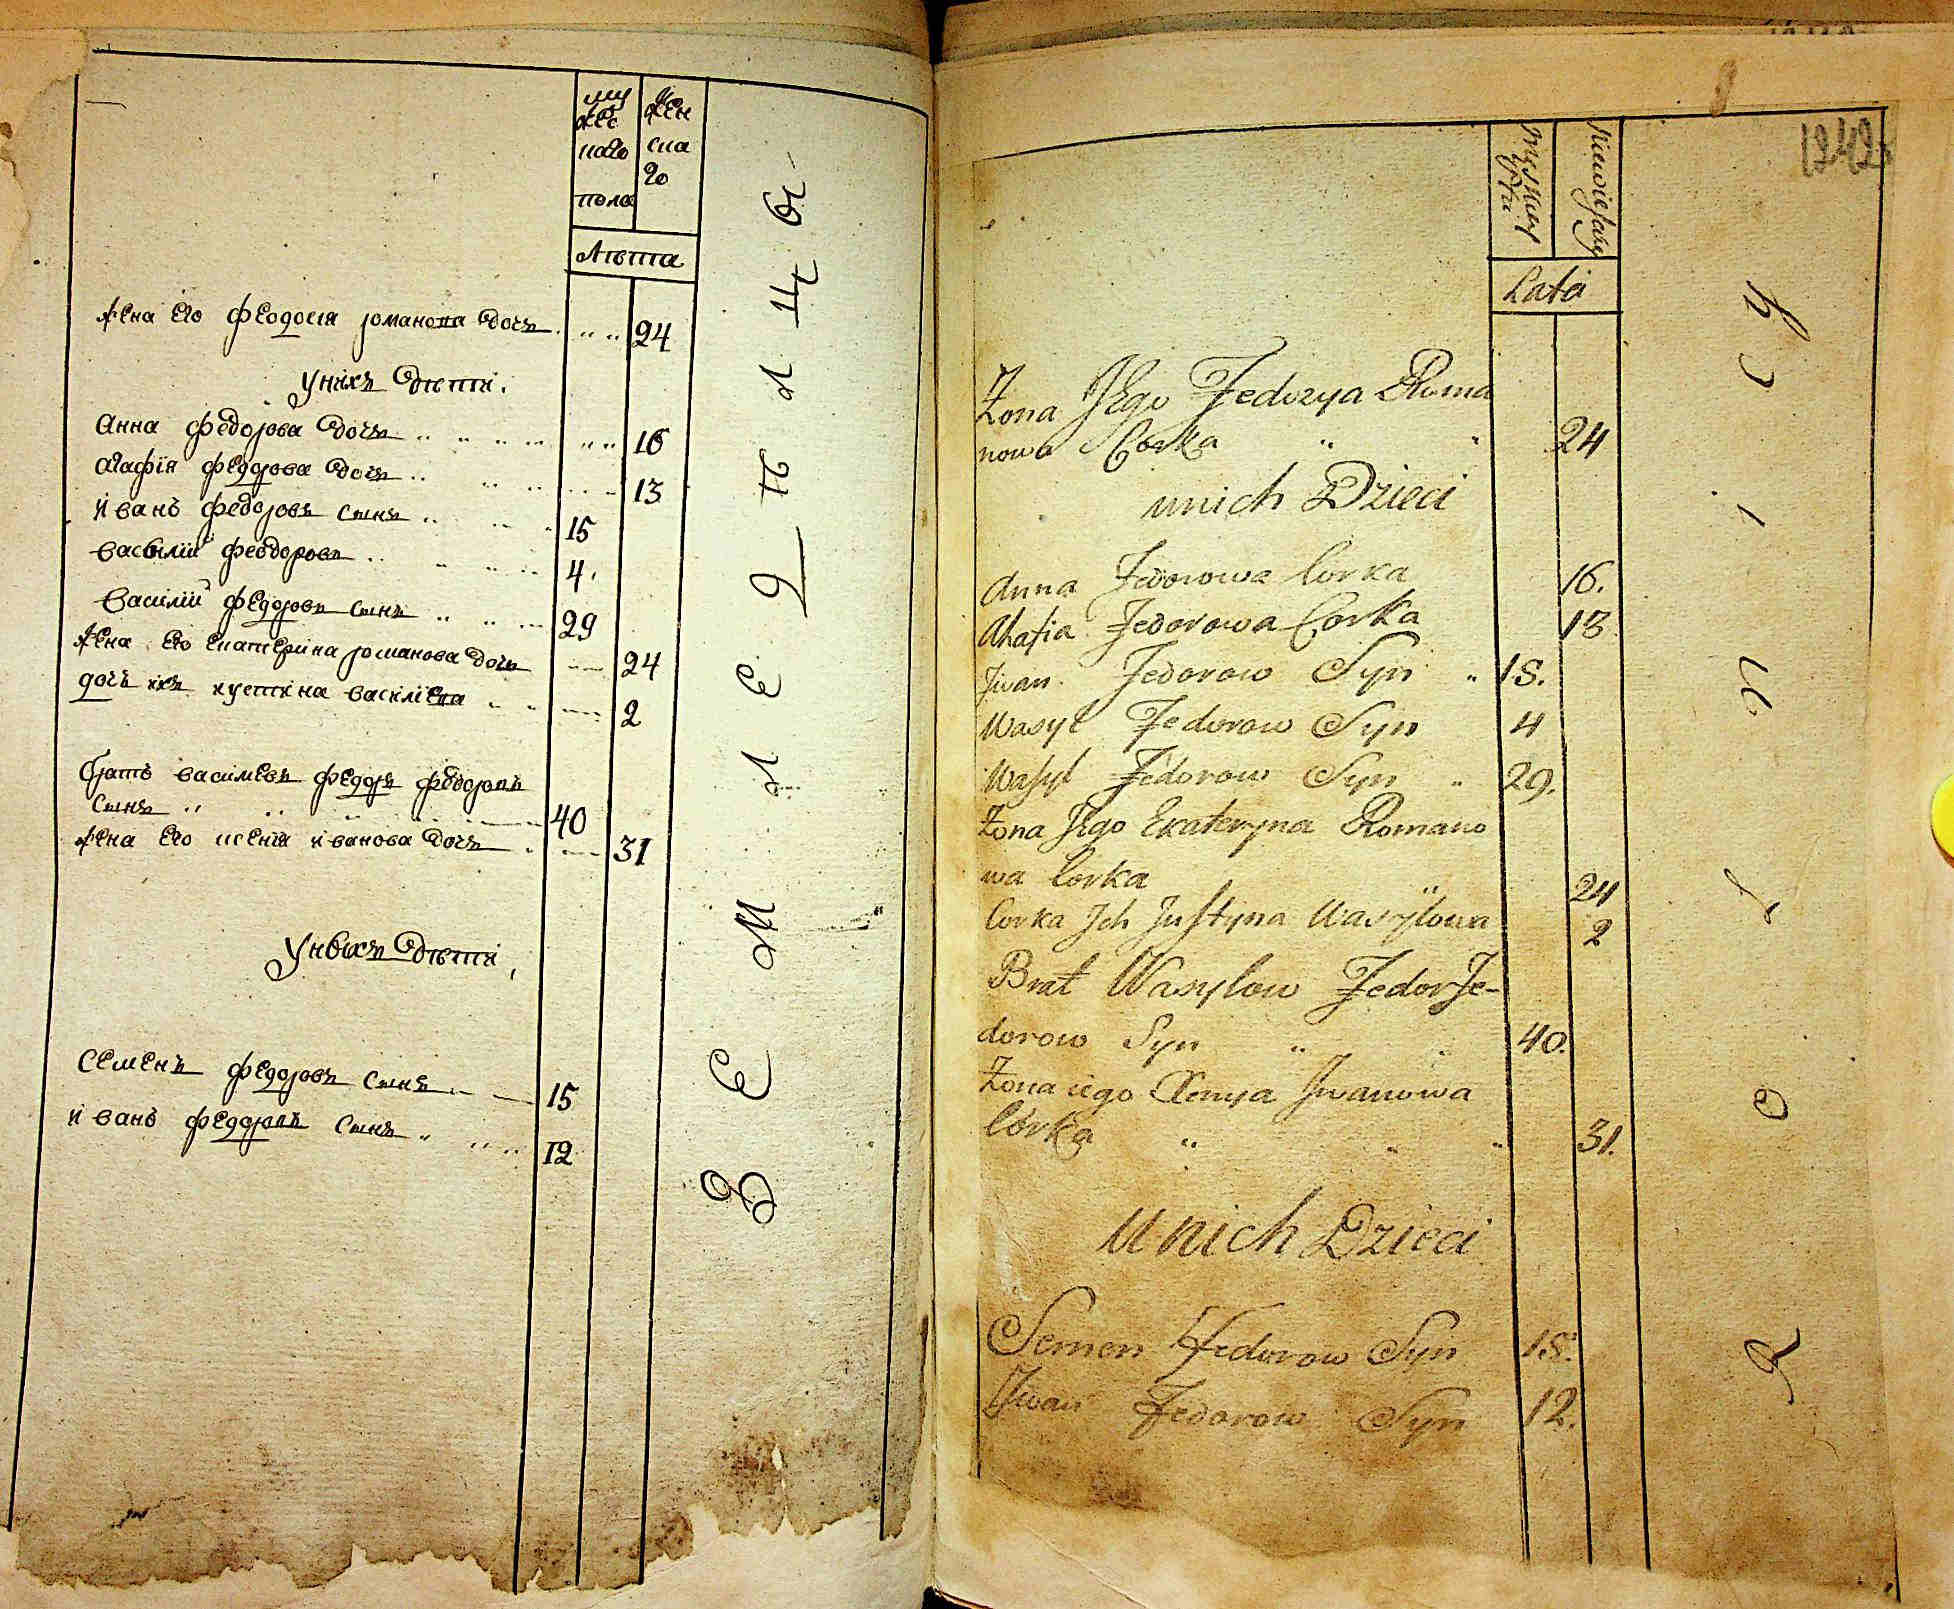 муж
ска
го
пола
жен
ска
го
лѣта
жена его феодосія романова дочь 24
унихъ дѣти.
анна федорова дочь 16
агафія федорова дочь 13
иванъ федоровъ сынъ 15
василій феодоровъ 4.
василій федоровъ сынъ 29
жена его екатерина романова дочь 24
дочь ихъ иустина василіева 2
братъ василіевъ федоръ феодоровъ
сынъ 40
жена его ксенія иванова дочь 31
унихъ дѣти,
семенъ федоровъ сынъ 15
иванъ федоровъ сынъ 12
земледѣлцы
1242
Lata
Zona Jego Fedozya Roma
nowa Corka 24
unich Dzieci
Anna Fedorowa Corka 16.
Ahafia Fedorowa Corka 13
Jwan Fedorow Syn 15.
Wasyl Fedorow Syn 4
Wasyl Fedorow Syn 29.
Zona Jego Ekateryna Romano
wa Corka 24
Corka Jch Justyna Wasylowa 2
Brat Wasylow Fedor Fe-
dorow Syn 40.
Zona iego Xenya Jwanowa
Corka 31.
Unich Dzieci
Semen Fedorow Syn 15.
Jwan Fedorow Syn 12.